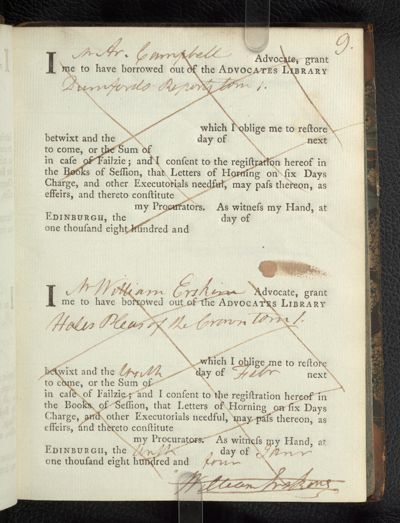 9.
I Mr Ar. Campbell Advocate, grant
me to have borrowed out of the ADVOCATES LIBRARY
Durnfords Reports tom 1.
which I oblige me to reſtore
betwixt and the day of next
to come, or the Sum of
in caſe of Failzie; and I conſent to the regiſtration hereof in
the Books of Seſſion, that Letters of Horning on ſix Days
Charge, and other Executorials needful, may paſs thereon, as
effeirs, and thereto conſtitute
my Procurators. As witneſs my Hand, at
EDINBURGH, the day of
one thouſand eight hundred and
I Mr William Erskine Advocate, grant
me to have borrowed out of the ADVOCATES LIBRARY
Hales Pleas of the Crown tom 1.
which I oblige me to reſtore
betwixt and the day of Febr next
to come, or the Sum of
in caſe of Failzie; and I conſent to the regiſtration hereof in
the Books of Seſſion, that Letters of Horning on ſix Days
Charge, and other Executorials needful, may paſs thereon, as
effeirs, and thereto conſtitute
my Procurators. As witneſs my Hand, at
EDINBURGH, the day of Janr
one thouſand eight hundred and four
William Erskine